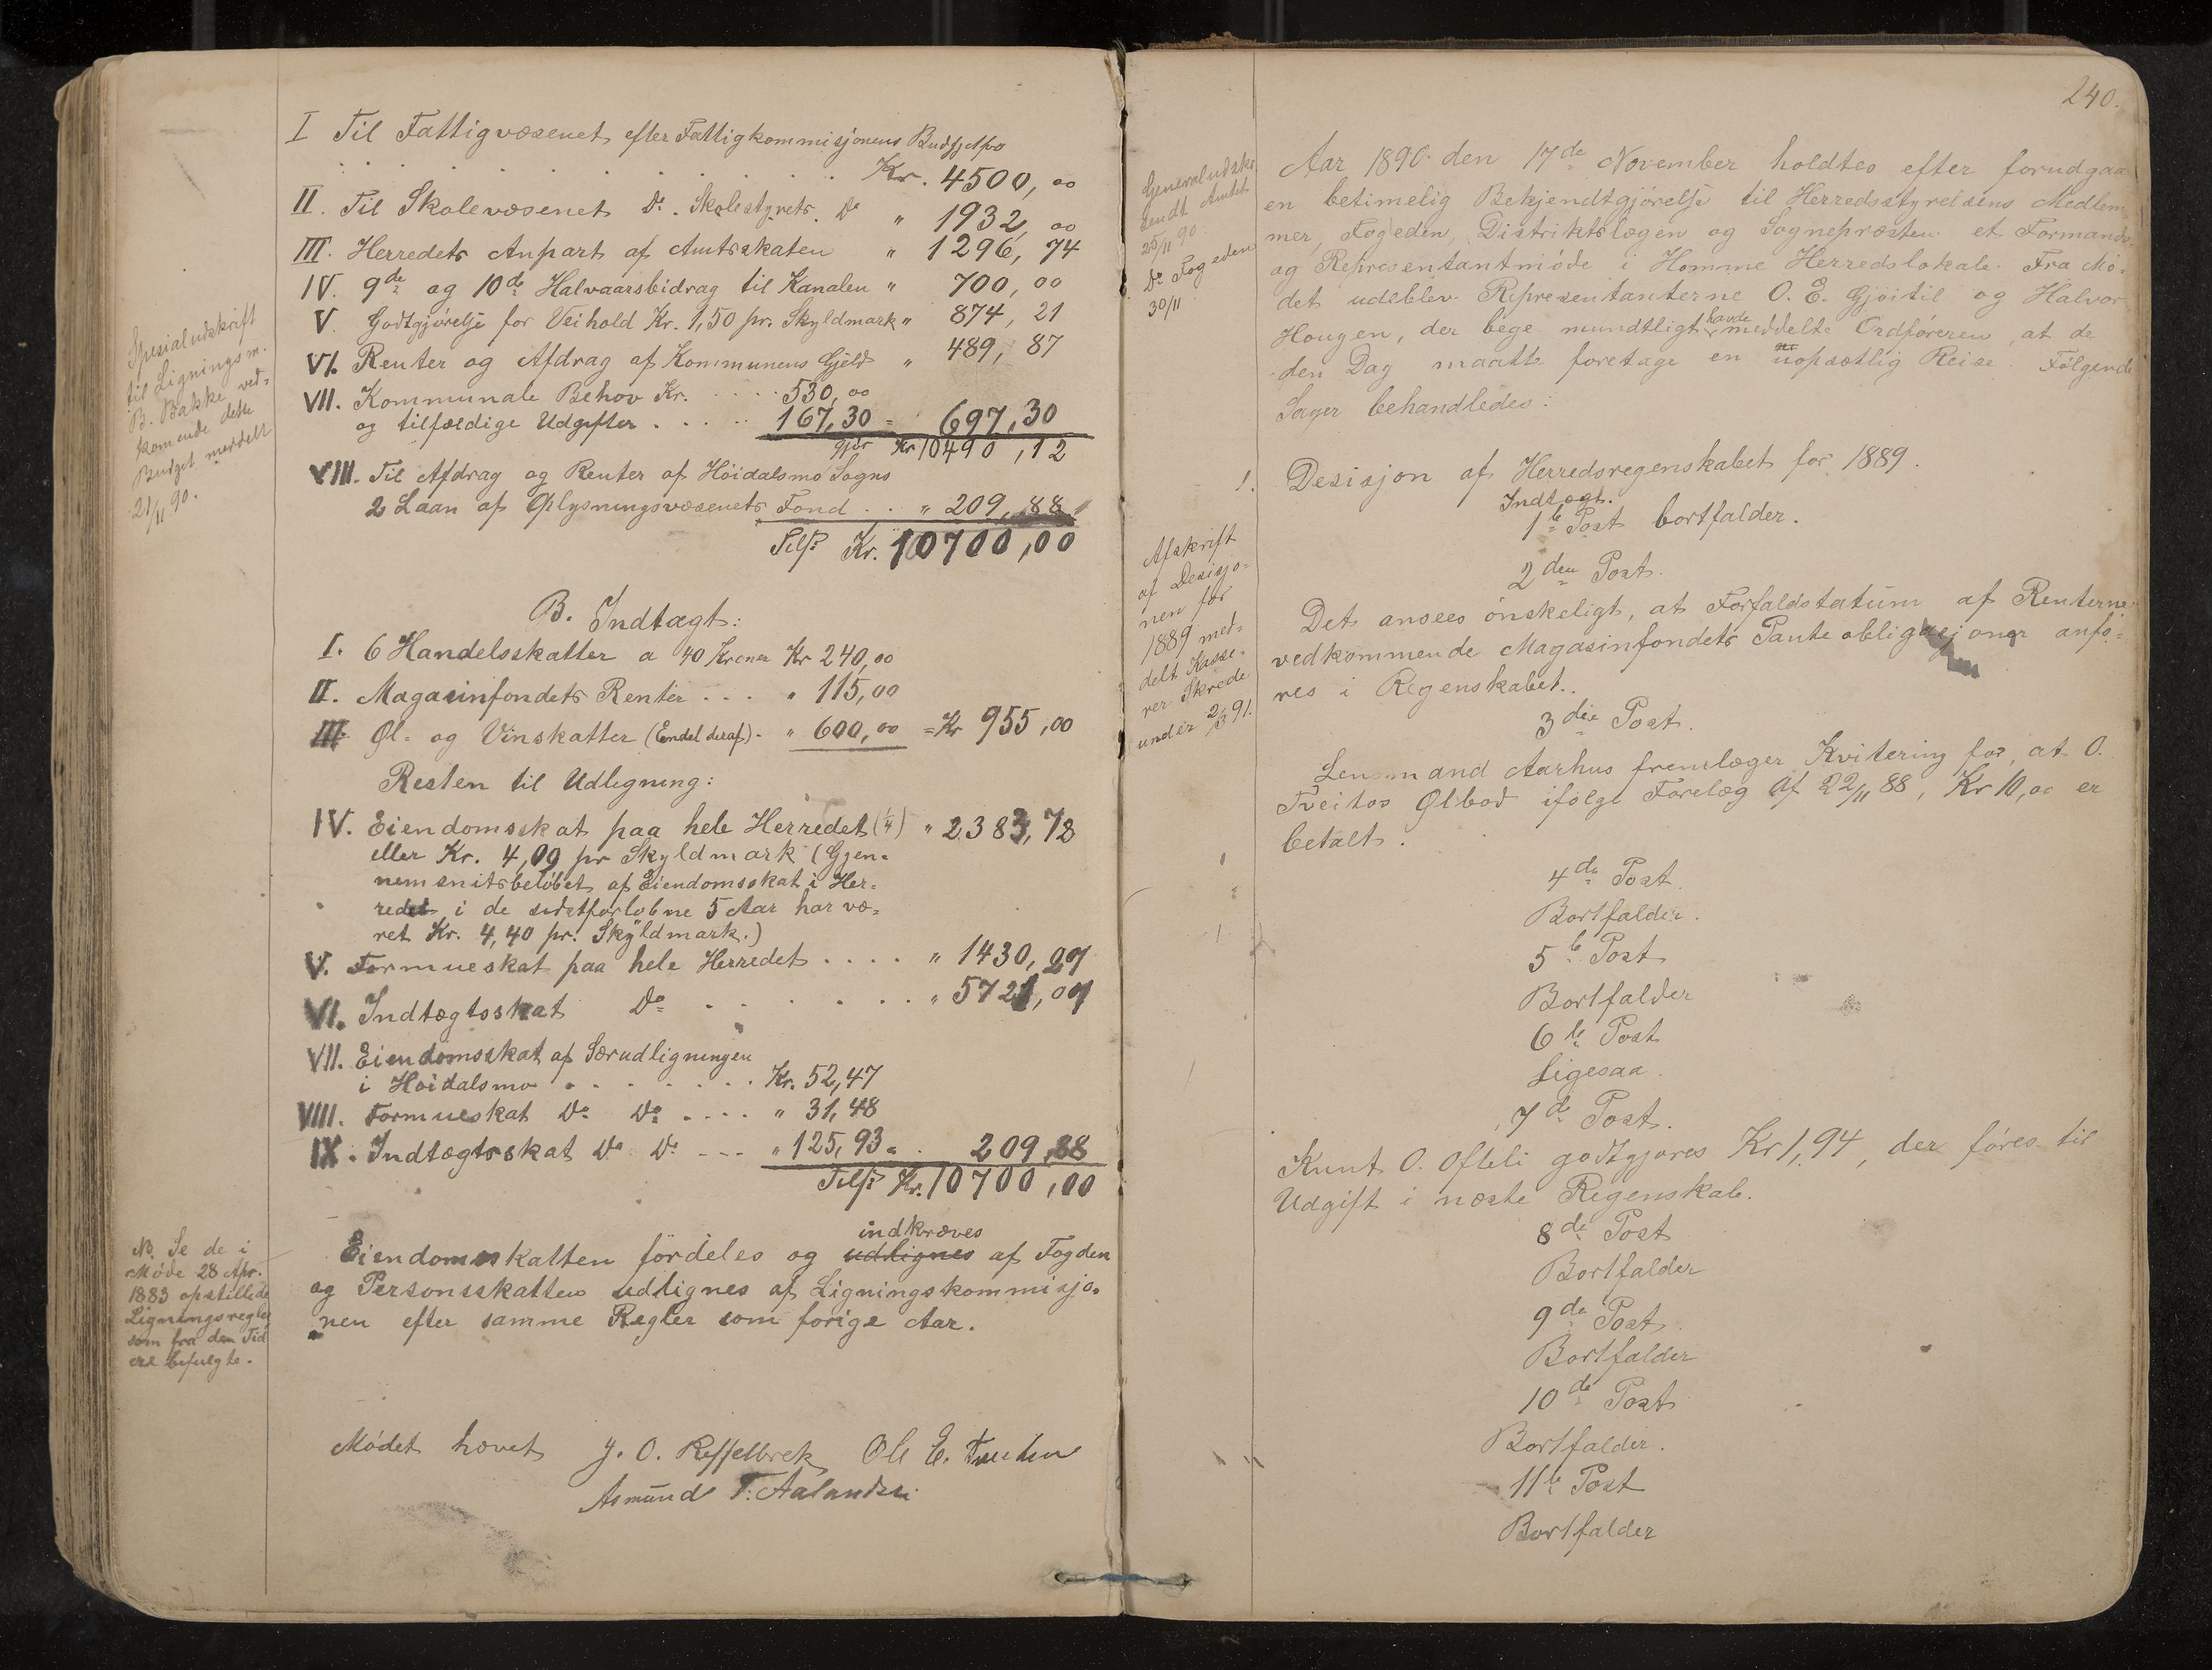 I Til Fattigvæsenet efter Fattigkommisjonens Budgjet fra
. . . . . . . . . . Kr. 4500,00
II. Til Skolevæsenet Do. Skolestyrets Do " 1932,00
III. Herredets Anpart af Amtsskaten " 1296,74
IV. 9de og 10de Halvaarsbidrag til Kanalen " 700,00
V. Godtgjørelse for Veihold Kr. 1,50 pr. Skyldmark " 874,21
VI. Renter og Afdrag af Kommunens Gjeld " 489,87
VII. Kommunale Behov Kr. . . . . 530,00
og tilfældige Udgifter . . . . . 167,30 = 697,30
gjør Kr 10490,12
VIII. Til Afdrag og Renter af Höidalsmo Sogns
2 Laan af Oplysningsvæsenets Fond . . " 209,88
Tils: Kr. 10700,00
B. Indtægt:
I. 6 Handelsskatter a 40 Kroner Kr 240,00
II. Magasinfondets Renter . . . " 115,00
III. Øl- og Vinskatter (Endel deraf) - " 600,00 = Kr 955,00
Resten til Udligning:
IV. Eiendomsskat paa hele Herredet (1/4) " 2383,78
eller Kr. 4,09 pr Skyldmark (Gjen-
nemsnitsbeløbet af Eiendomsskat i Her-
redet i de sidstforløbne 5 Aar har væ-
ret Kr. 4,40 pr. Skyldmark.)
V. Formueskat paa hele Herredet . . . . " 1430,27
VI. Indtægtsskat Do - . . . . . . " 5721,07
VII. Eiendomsskat af Særudligningen
i Höidalsmo . . . . . . . Kr. 52,47
VIII. Formueskat Do Do . . . . " 31,48
IX. Indtægtsskat Do Do - - - " 125,93 = . 209,88
Tils: Kr. 10700,00
indkræves
Eiendomsskatten fördeles og udlignes af Fogden
og Personsskatten udlignes af Ligningskommisjo-
nen efter samme Regler som forige Aar.
Mødet hævet J. O. Ole E.
Asmund T. Aalandslii
Spesialudskrift
til Ligningsm.
B. Bakke ved-
komende dette
Budget meddelt
21/11 90.
NB. Se de i
Møde 28 Apr.
1883 opstillede
Ligningsregler
som fra den Tid
ere befulgte.
240.
Aar 1890 den 17de November holdtes efter forudgaa
en betimelig Bekjendtgjørelse til Herredsstyrelsens Medlem-
mer, Fogeden, Distriktslægen og Sognepræsten et Formands-
og Representantmøde i Homme Herredslokale. Fra Mø-
det udeblev Representanterne O. E. Gjöitil og Halvor
Hougen, der bege mundtligt havde meddelte Ordføreren, at de
den Dag maatte foretage en uopsætlig Reise. Følgende
Sager behandledes:
Generaludskr
sendt Amtet
25/11 90.
Do Fogeden
30/11
1. Desisjon af Herredsregenskabet for 1889.
Indtægt.
1te Post bortfalder.
2den Post.
Det ansees ønskeligt, at Forfaldstatum af Renterne
vedkommende Magasinfondets Panteobligasjoner anfø-
res i Regenskabet.
3die Post.
Lensmand Aarhus fremlæger Kvitering for, at O.
Tveitos Ølbod ifølge Forelæg af 22/11 88, Kr 10,00 er
betalt.
Afskrift
af Desisjo-
nen for
1889 med-
delt Kasse-
rer Skrede
under 2/3 91.
4de Post.
Bortfalder.
5te Post
Bortfalder
6te Post
Ligesaa.
7de Post.
Knut O. Ofteli godtgjøres Kr 1,94, der føres til
Udgift i næste Regenskab.
8de Post
Bortfalder
9de Post
Bortfalder
10de Post
Bortfalder.
11te Post
Bortfalder